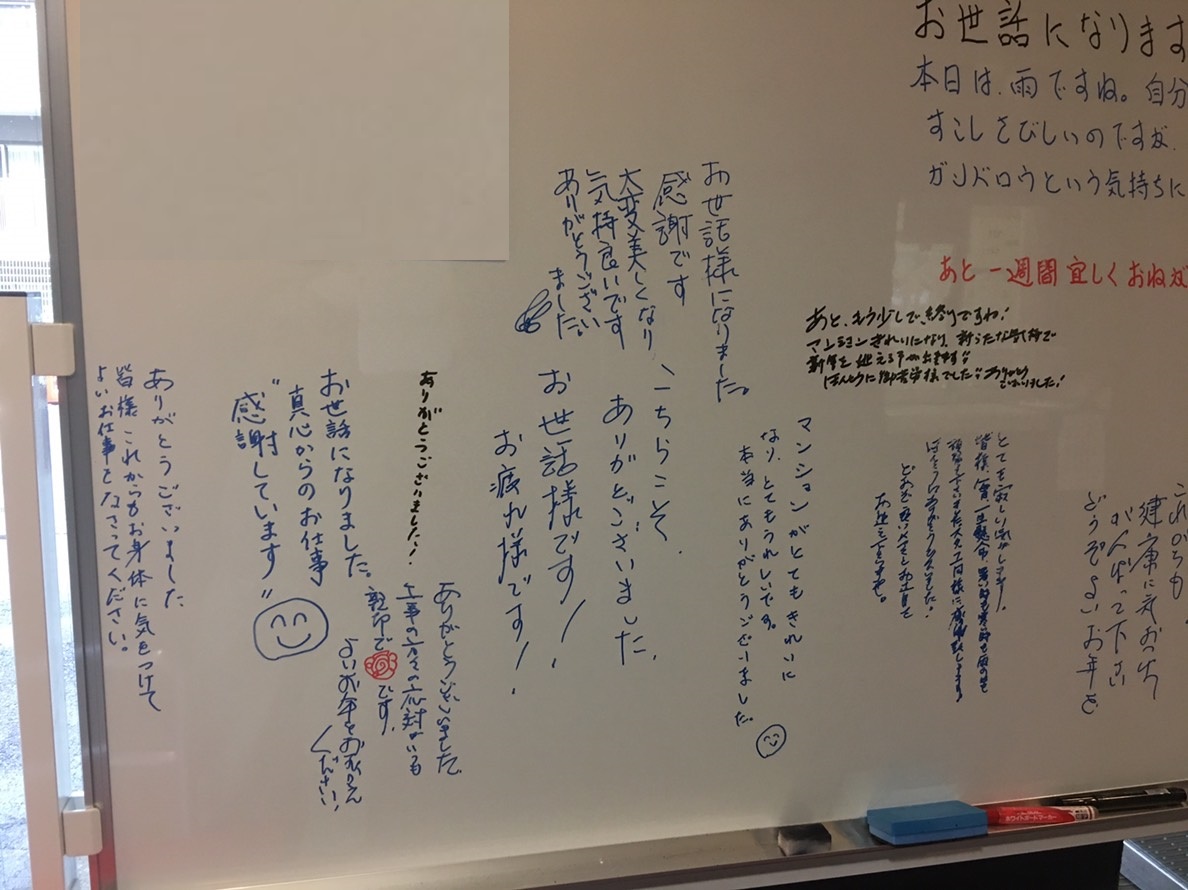 お世話になります
本日は、雨ですね。自分
すこしさびしいのですが、
ガンバロウという気持ちに
あと一週間宜しくおねが
あと、もう少しで、終りですね!
マンションきれいになり、新らたな気持で
新年を迎える事が出来ます
ほんとうに御苦労様でした ありがとう
ございました!
これからも
健康に気おつけ
がんばって下さい
どうぞよいお年を
皆様、
どうぞ良いお年を
お世話様になりました。
感謝です
大変美しくなり
気持良いです
ありがとうござい
ました。
マンションがとてもきれいに
なり、とてもうれしいです。
本当にありがとうございました。
こちらこそ、
ありがとございました、
お世話様です!
お疲れ様です!
ありがとうございました!
ありがとうございました。
工事の方々の応対がいつも
親切で です。
よいお年をお迎え
ください!
お世話になりました。
真心からのお仕事
"感謝しています"
ありがとうございました
皆様これからもお身体に気をつけて
よいお仕事をなさってください。
ホワイトボードマーカー